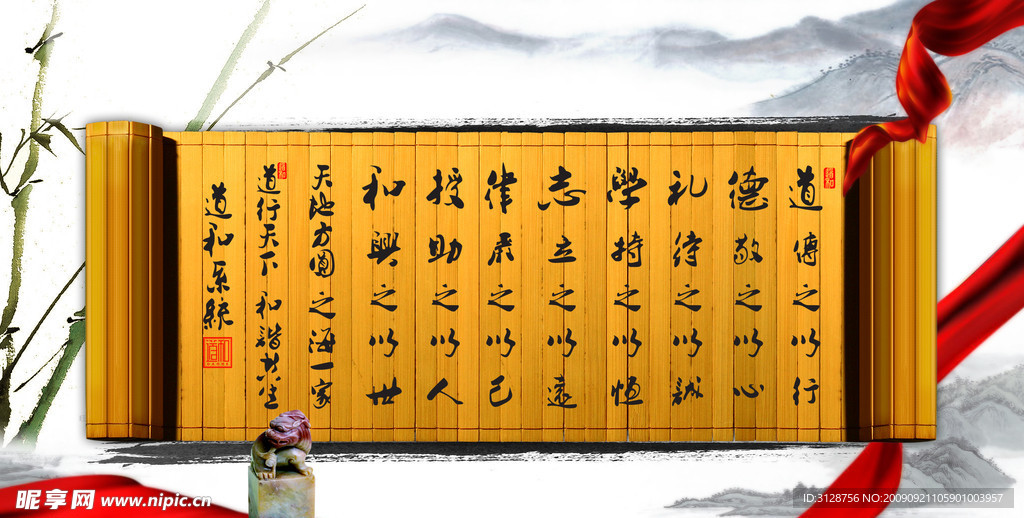 道傳之以行
德敬之以心
礼待之以誠
學持之以恒
志立之以遠
律嚴之以己
授助之以人
和興之以世
天地方圓之海一家
道行天下和諧共生
道和系統
昵享网 www.nipic.cn
ID:3128756 NO:20090921105901003957